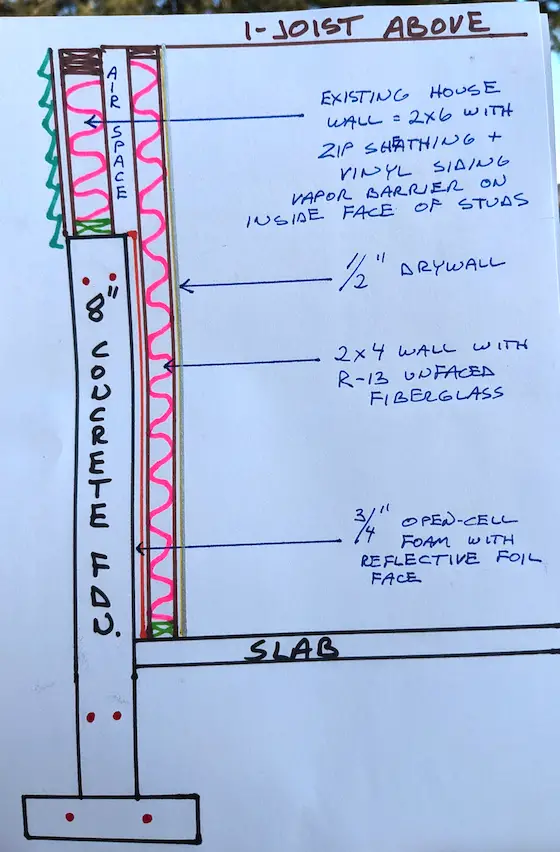 1-JOIST ABOVE
AIR SPACE
EXISTING HOUSE
WALL = 2X6 WITH
ZIP SHATHING +
VINYL SIDING
VAPOR BARRIER ON
INSIDE FACE OF STUDS
1/2" DRYWALL
8" CONCRETE FDN.
2X4 WALL WITH
R-13 UNFACED
FIBERGLASS
3/4" OPEN-CELL
FOAM WITH
REFLECTIVE FOIL
FACE
SLAB